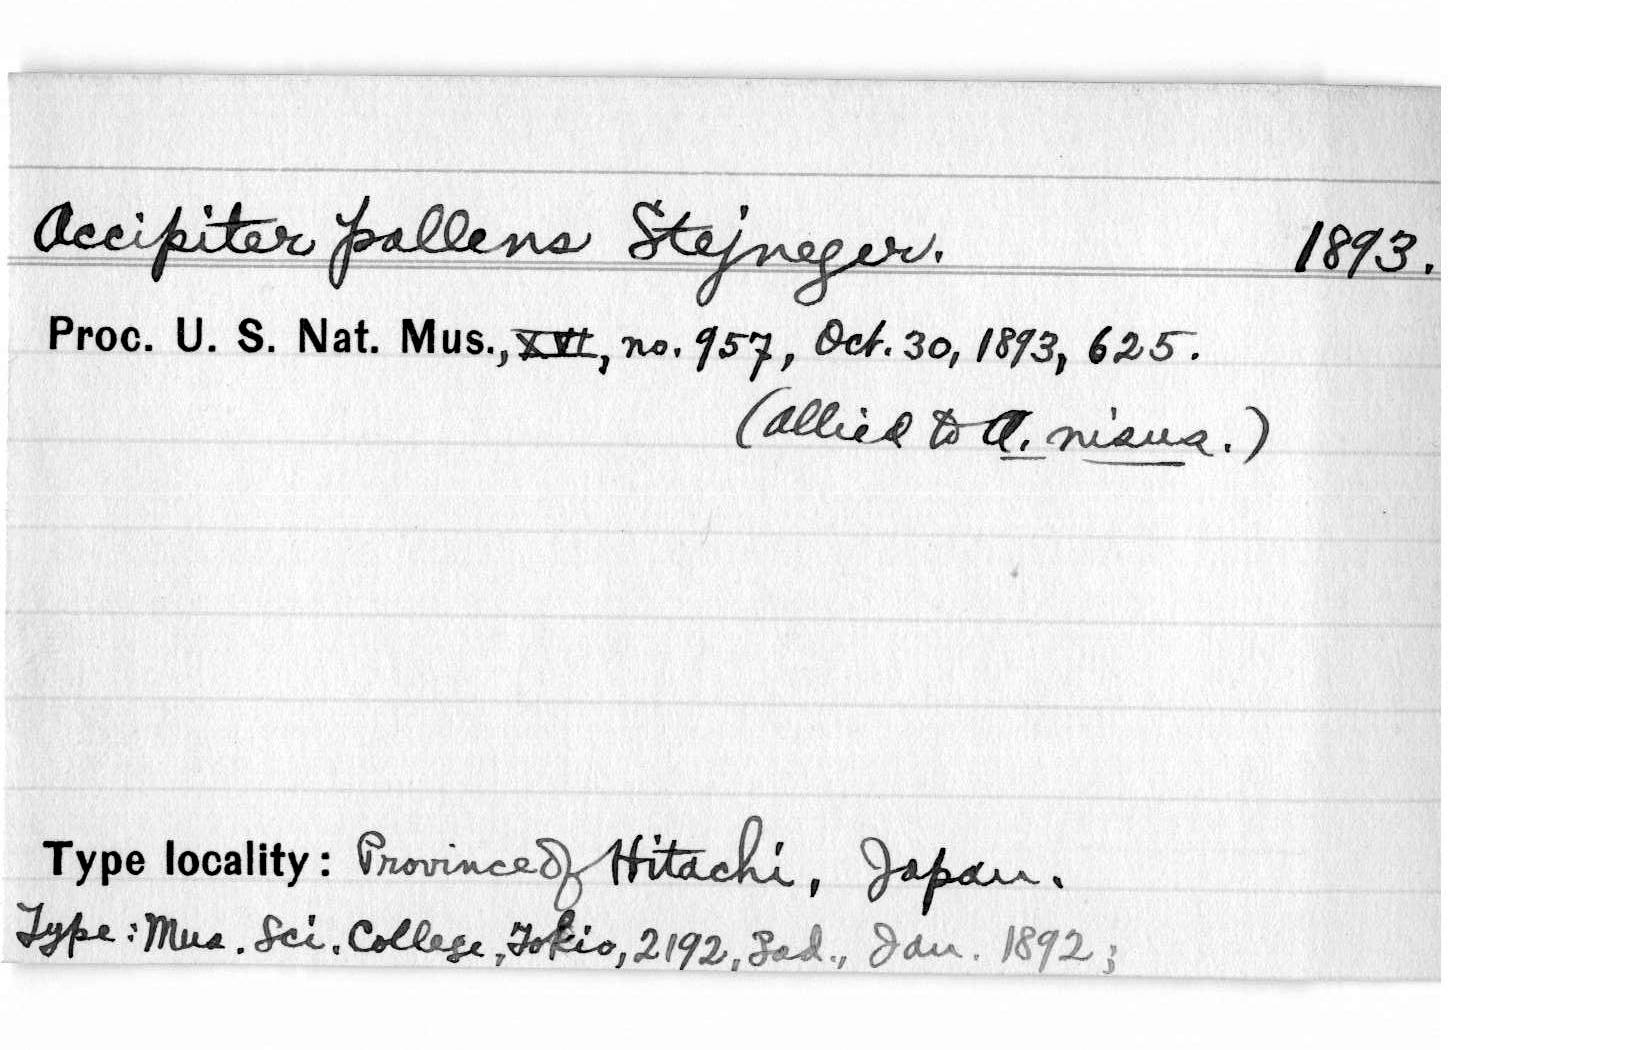 Accipiter pallens Stejneger. 1893.
Proc. U. S. Nat. Mus., XVI, no. 957, Oct. 30, 1893, 625.
(allied to A. nisus.)
Type locality: Province of Hitachi, Japan.
Type: Mus. Sci. College, Tokio, 2192, ad., Jan. 1892;